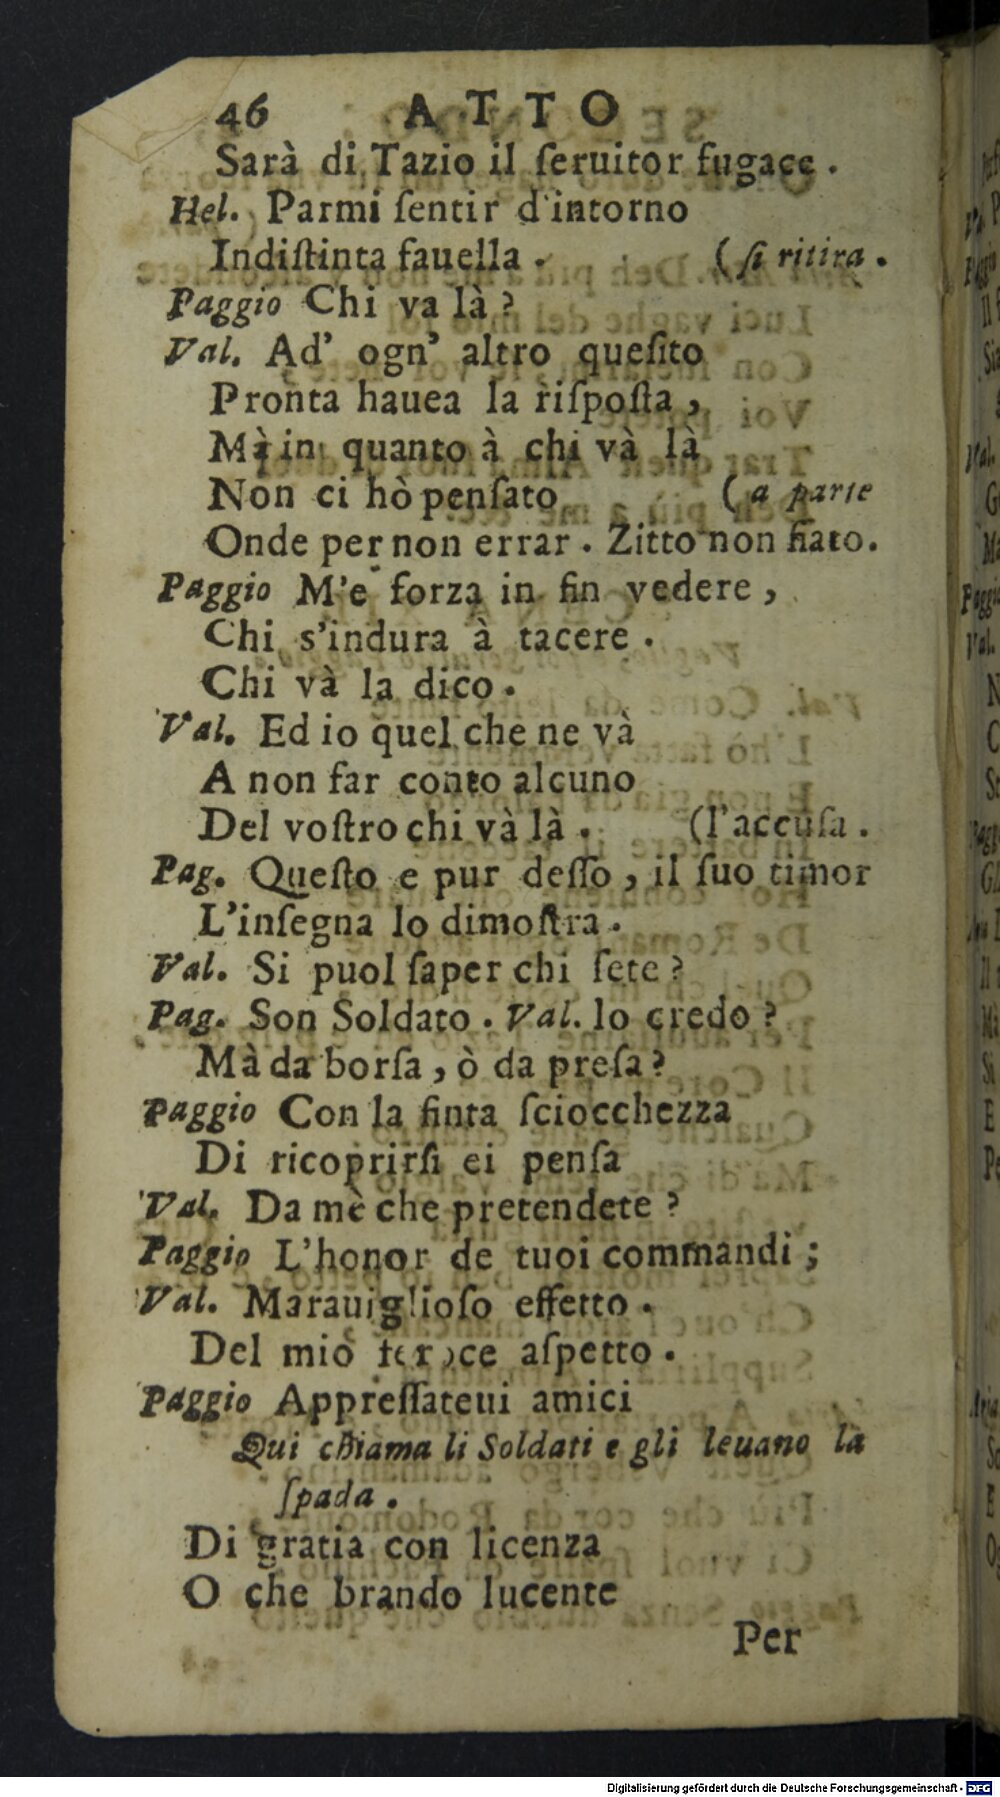 46 ATTO
Sarà di Tazio il ſeruitor fugace.
Hel. Parmi ſentir d'intorno
Indiſtinta fauella. (ſi ritira.
Paggio Chi va là?
Val. Ad' ogn' altro queſito
Pronta hauea la riſpoſta,
Mà in quanto à chi và là
Non ci hò penſato (a parte
Onde per non errar. Zitto non fiato.
Paggio M'e forza in fin vedere,
Chi s'indura à tacere.
Chi và la dico.
Val. Ed io quel che ne và
A non far conto alcuno
Del voſtro chi và là. (l'accuſa.
Pag. Queſto e pur deſſo, il ſuo timor
L'inſegna lo dimoſtra.
Val. Si puol ſaper chi ſete?
Pag. Son Soldato. Val. lo credo?
Mà da borſa, ò da preſa?
Paggio Con la finta ſciocchezza
Di ricoprirſi ei penſa
Val. Da mè che pretendete?
Paggio L'honor de tuoi commandi;
Val. Marauiglioſo effetto.
Del mio feroce aſpetto.
Paggio Appreſſateui amici
Qui chiama li Soldati e gli leuano la
ſpada.
Di gratia con licenza
O che brando lucente
Per
Digitalisierung gefördert durch die Deutsche Forschungsgemeinschaft - DFG